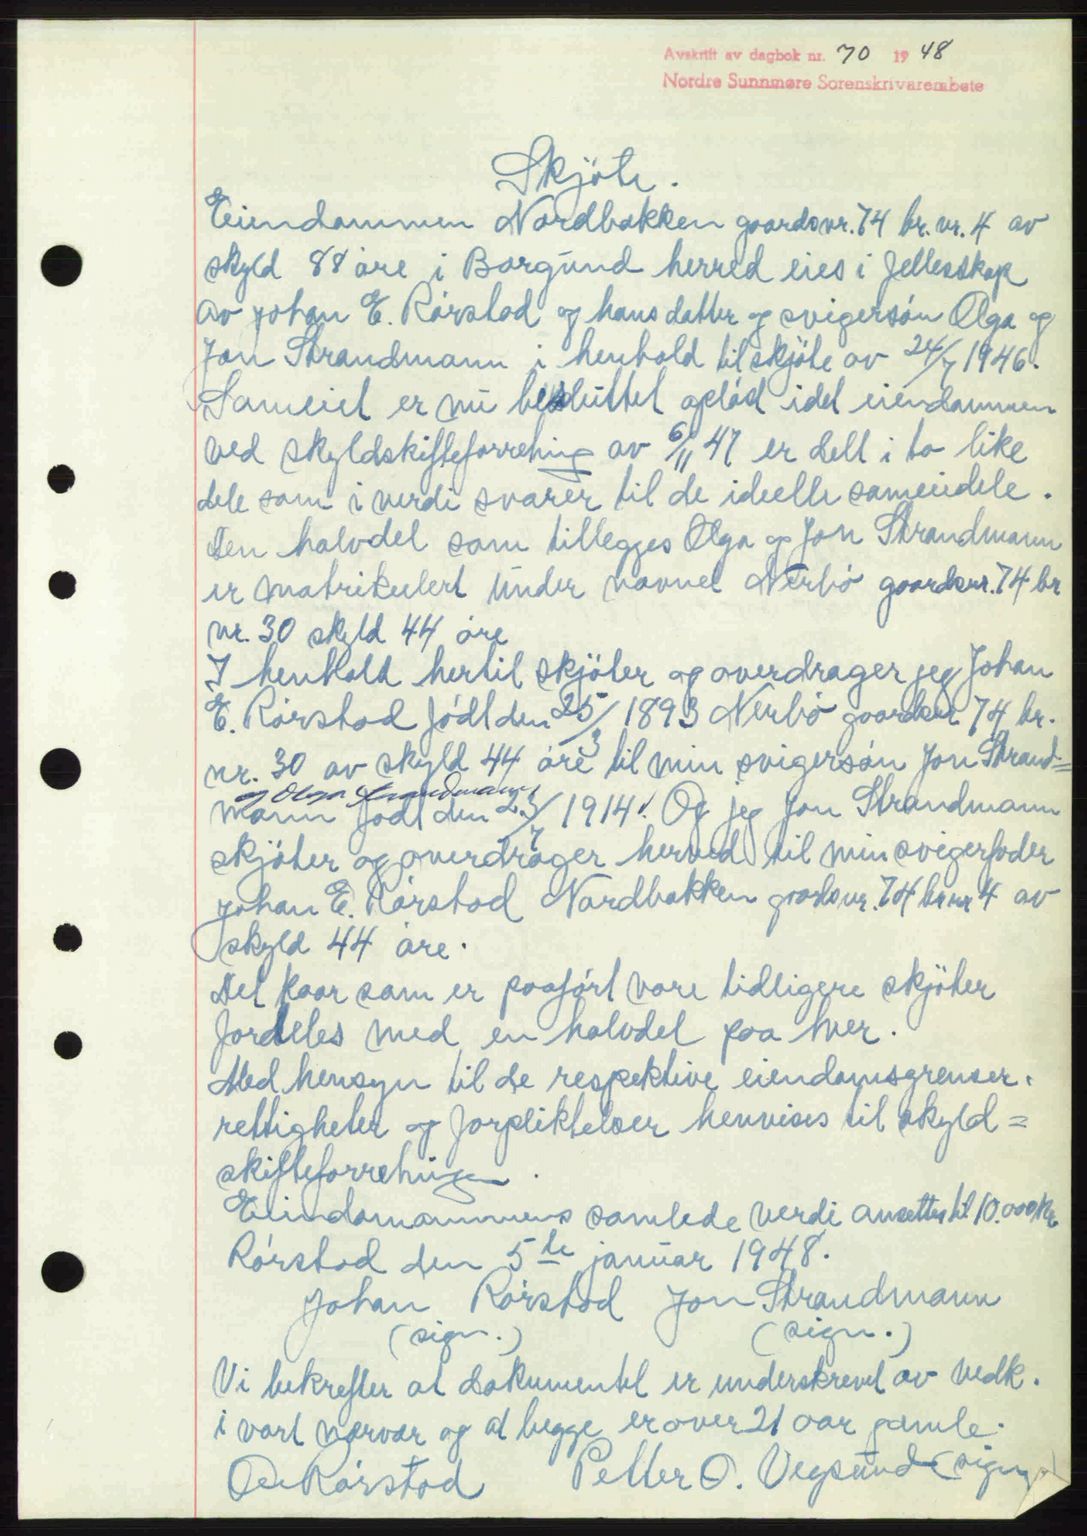 Avskrift av dagbok nr. 70 1948
Nordre Sunnmøre Sorenskrivarembete
Skjöte.
Eiendommen Nordbakken gaardsnr. 74 br. nr. 4 av
skyld 88 öre i Borgund herred eies i fellesskap
av Johan E. Rörstad og hans datter og svigersön Olga og
Jon Strandmann i henhold til skjöte av 24/7 1946.
Sameiet er nu besluttet oplöst idet eiendommen
ved skyldskifteforretning av 6/11 47 er delt i to like
dele som i verdi svarer til de ideelle sameiedele.
Den halvdel som tillegges Olga og Jon Strandmann
er matrikulert under navnet Nerbö gaardsnr. 74 br
nr. 30 skyld 44 öre
I henhold hertil skjöter og overdrager jeg Johan
E. Rörstad födt den 25/3 1893 Nerbö gaardsnr 74 br.
nr. 30 av skyld 44 öre til min svigersön Jon Strand=
og Olga Strandmann
mann födt den 23/7 1914. Og jeg Jon Strandmann
skjöter og overdrager herved til min svigerfader
Johan E. Rörstad Nordbakken gardsnr. 74 br nr 4 av
skyld 44 öre.
Det kaar som er paafört vore tidligere skjöter
fordeles med en halvdel paa hver.
Med hensyn til de respektive eiendomsgrenser,
rettigheter og forpliktelser henvises til skyld=
skifteforretningen.
Eiendomammens samlede verdi ansettes til 10.000 Kr.
Rörstad den 5te januar 1948.
Johan Rörstad Jon Strandmann
(sign.) (sign.)
Vi bekrefter at dokumentet er underskrevet av vedk.
i vort nærvær og at begge er over 21 aar gamle.
Rörstad Petter O. Vegsund (sign.)